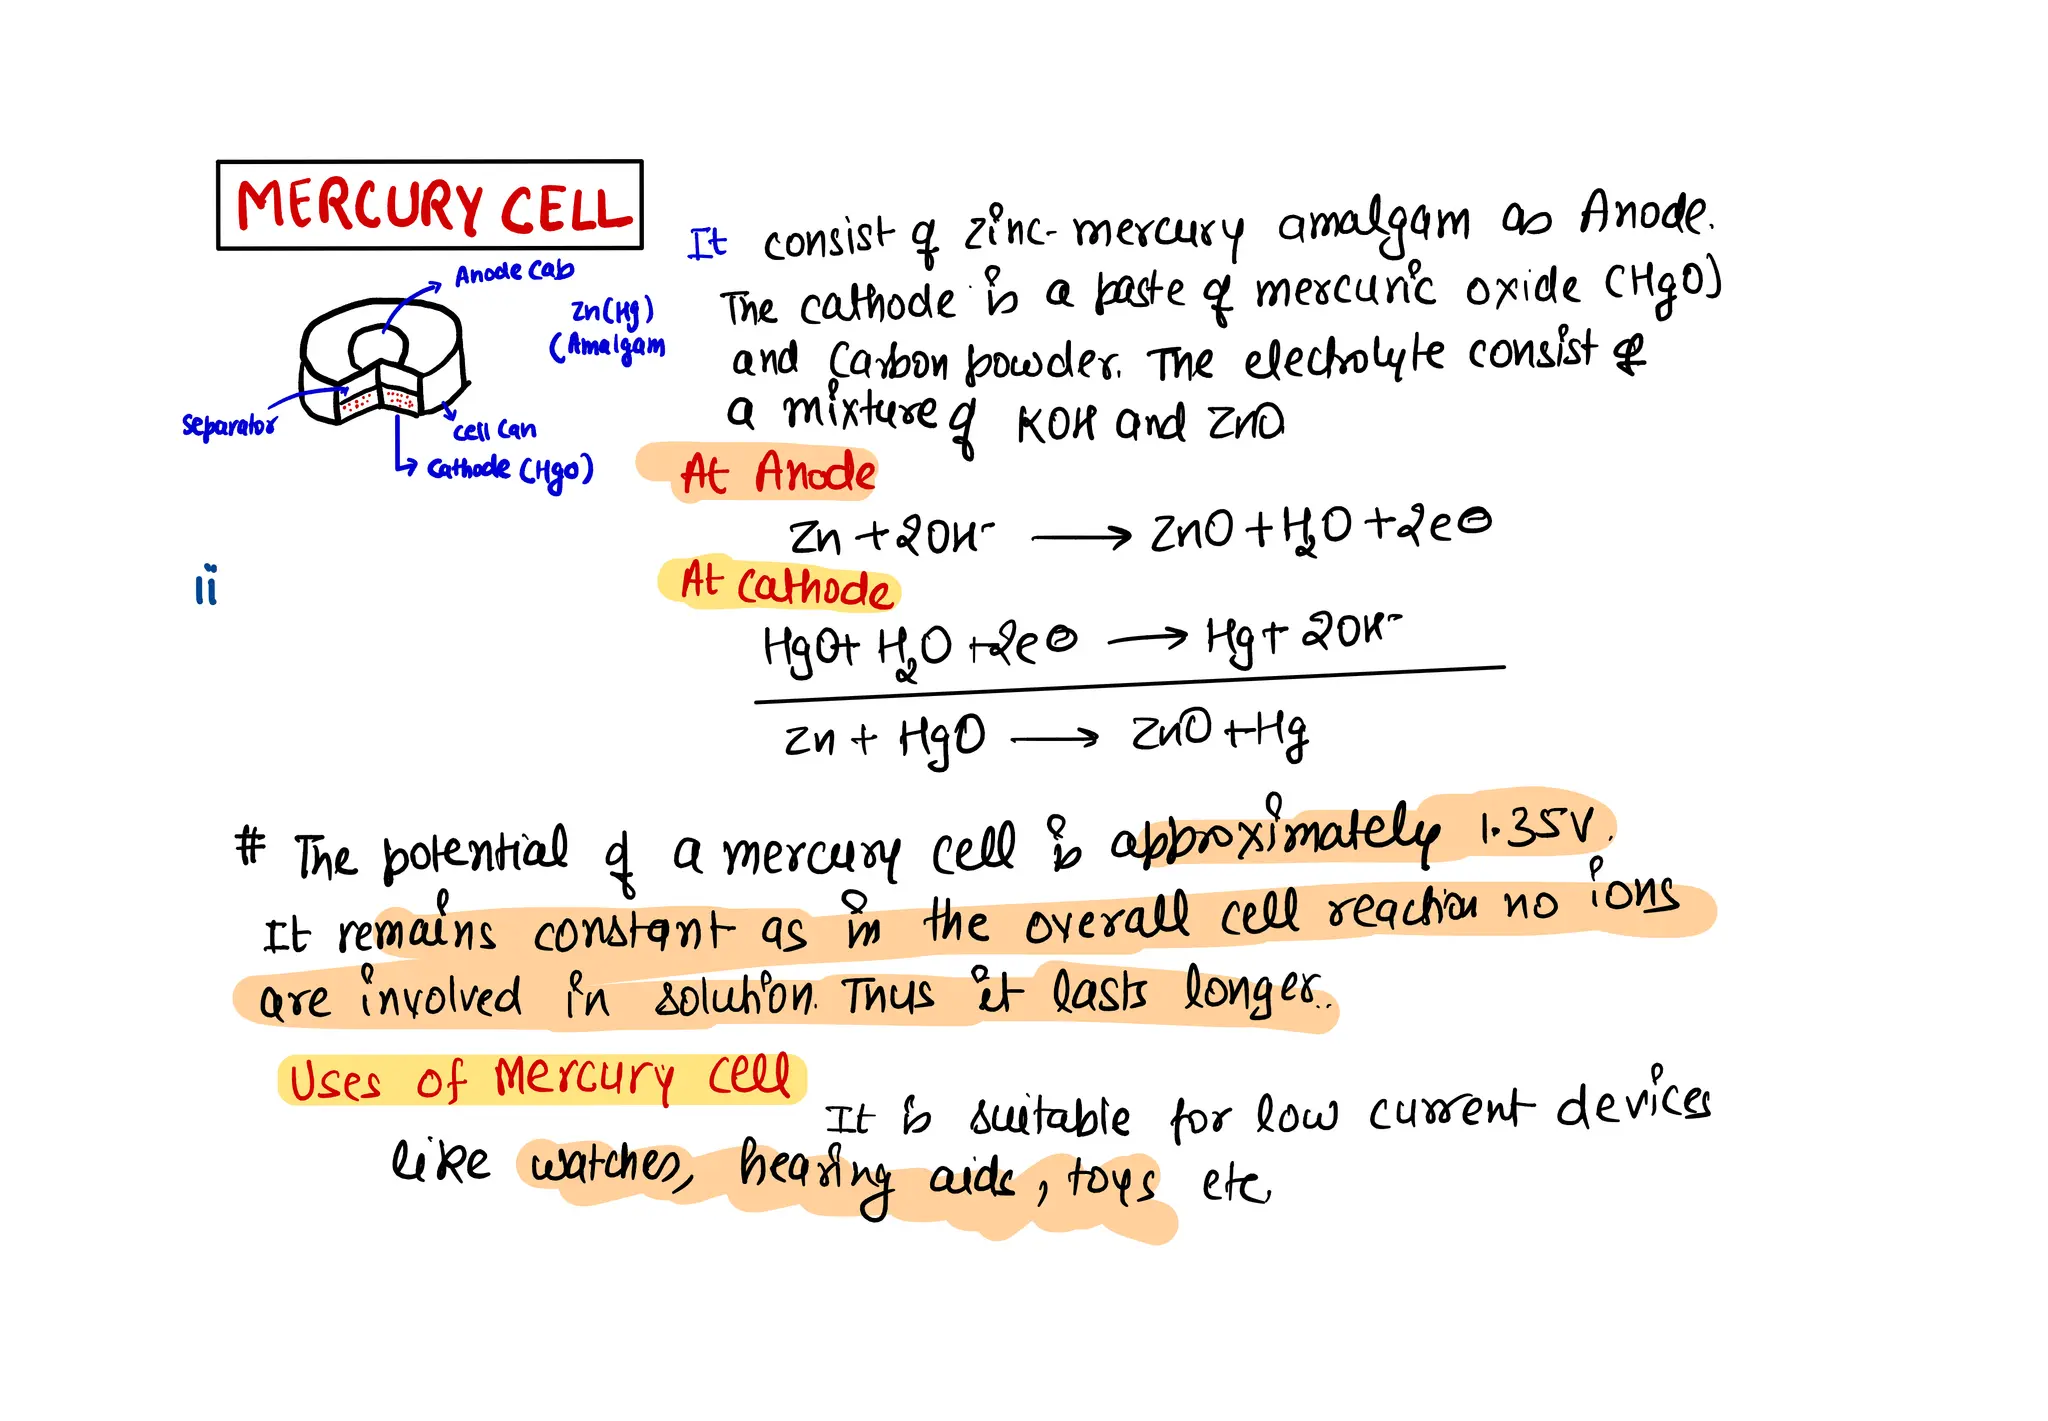 MERCURY CELL
It consist of zinc-mercury amalgam as Anode.
The cathode is a paste of mercuric oxide (HgO)
and Carbon powder. The electrolyte consist of
a mixture of KOH and ZnO
Anode Cab
Zn(Hg)
(Amalgam
Separator
Cell Can
Cathode (HgO)
At Anode
Zn + 2OH⁻ ⟶ ZnO + H₂O + 2e⊖
ii
At Cathode
HgO + H₂O + 2e⊖ ⟶ Hg + 2OH⁻
Zn + HgO ⟶ ZnO + Hg
# The potential of a mercury cell is approximately 1.35V.
It remains constant as in the overall cell reaction no ions
are involved in solution. Thus it lasts longer..
Uses of Mercury Cell
It is suitable for low current devices
like watches, hearing aids, toys etc